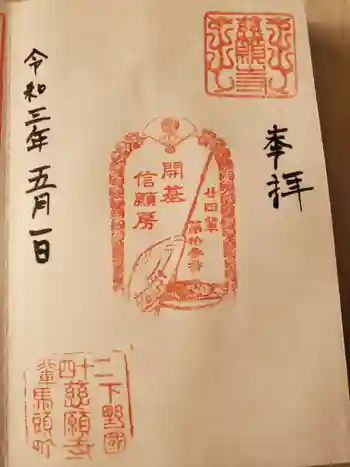 奉拝
慈願寺
廿四輩
第拾三番
開基
信願房
令和三年五月一日
下野國
二十四
慈願寺
輩馬頭町